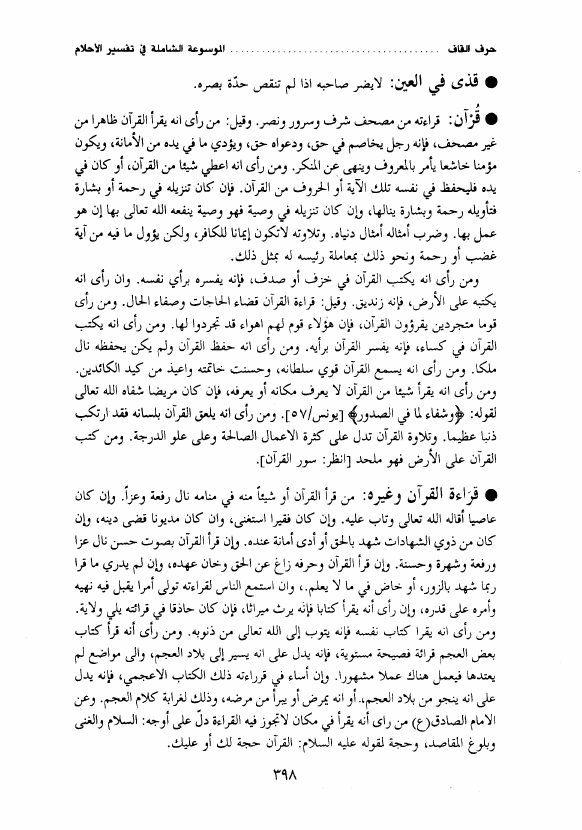 حرف القاف ........................................ الموسوعة الشاملة في تفسير الأحلام
● قذى في العين: لايضر صاحبه اذا لم تنقص حدّة بصره.
● قُرْآن: قراءته من مصحف شرف وسرور ونصر. وقيل: من رأى انه يقرأ القرآن ظاهرا من
غير مصحف، فإنه رجل يخاصم في حق، ودعواه حق، ويؤدي ما في يده من الأمانة، ويكون
مؤمنا خاشعا يأمر بالمعروف وينهى عن المنكر. ومن رأى انه اعطي شيئا من القرآن، أو كان في
يده فليحفظ في نفسه تلك الآية أو الحروف من القرآن. فإن كان تنزيله في رحمة أو بشارة
فتأويله رحمة وبشارة ينالها، وإن كان تنزيله في وصية فهو وصية ينفعه الله تعالى بها إن هو
عمل بها. وضرب أمثاله أمثال دنياه. وتلاوته لاتكون إيمانا للكافر، ولكن يؤول ما فيه من آية
غضب أو رحمة ونحو ذلك بمعاملة رئيسه له بمثل ذلك.
ومن رأى انه يكتب القرآن في خزف أو صدف، فإنه يفسره برأي نفسه. وان رأى انه
يكتبه على الأرض، فإنه زنديق. وقيل: قراءة القرآن قضاء الحاجات وصفاء الحال. ومن رأى
قوما متجردين يقرؤون القرآن، فإن هؤلاء قوم لهم اهواء قد تجردوا لها. ومن رأى انه يكتب
القرآن في كساء، فإنه يفسر القرآن برأيه. ومن رأى انه حفظ القرآن ولم يكن يحفظه نال
ملكا. ومن رأى انه يسمع القرآن قوي سلطانه، وحسنت خاتمته واعيذ من كيد الكائدين.
ومن رأى انه يقرأ شيئا من القرآن لا يعرف مكانه أو يعرفه، فإن كان مريضا شفاه الله تعالى
لقوله: ﴿وشفاء لما في الصدور﴾ [يونس/٥٧]. ومن رأى انه يلعق القرآن بلسانه فقد ارتكب
ذنبا عظيما. وتلاوة القرآن تدل على كثرة الاعمال الصالحة وعلى علو الدرجة. ومن كتب
القرآن على الأرض فهو ملحد [انظر: سور القرآن].
● قَرَاءة القرآن وغيره: من قرأ القرآن أو شيئاً منه في منامه نال رفعة وعزاً. وإن كان
عاصيا أقاله الله تعالى وتاب عليه. وإن كان فقيرا استغنى، وان كان مديونا قضى دينه، وإن
كان من ذوي الشهادات شهد بالحق أو أدى أمانة عنده. وإن قرأ القرآن بصوت حسن نال عزا
ورفعة وشهرة وحسنة. وإن قرأ القرآن وحرفه زاغ عن الحق وخان عهده، وإن لم يدري ما قرا
ربما شهد بالزور، أو خاض في ما لا يعلم.، وان استمع الناس لقراءته تولى أمرا يقبل فيه نهيه
وأمره على قدره، وإن رأى أنه يقرأ كتابا فإنه يرث ميراثا، فإن كان حاذقا في قرائته يلي ولاية.
ومن رأى انه يقرا كتاب نفسه فإنه يتوب إلى الله تعالى من ذنوبه. ومن رأى أنه قرأ كتاب
بعض العجم قرائة فصيحة مستوية، فإنه يدل على انه يسير إلى بلاد العجم، والى مواضع لم
يعتدها فيعمل هناك عملا مشهورا. وإن أساء في قرراءته ذلك الكتاب الاعجمي، فإنه يدل
على انه ينجو من بلاد العجم،. أو انه يمرض أو يبرأ من مرضه، وذلك لغرابة كلام العجم. وعن
الامام الصادق(ع) من راى أنه يقرأ في مكان لاتجوز فيه القراءة دلّ على أوجه: السلام والغنى
وبلوغ المقاصد، وحجة لقوله عليه السلام: القرآن حجة لك أو عليك.
٣٩٨